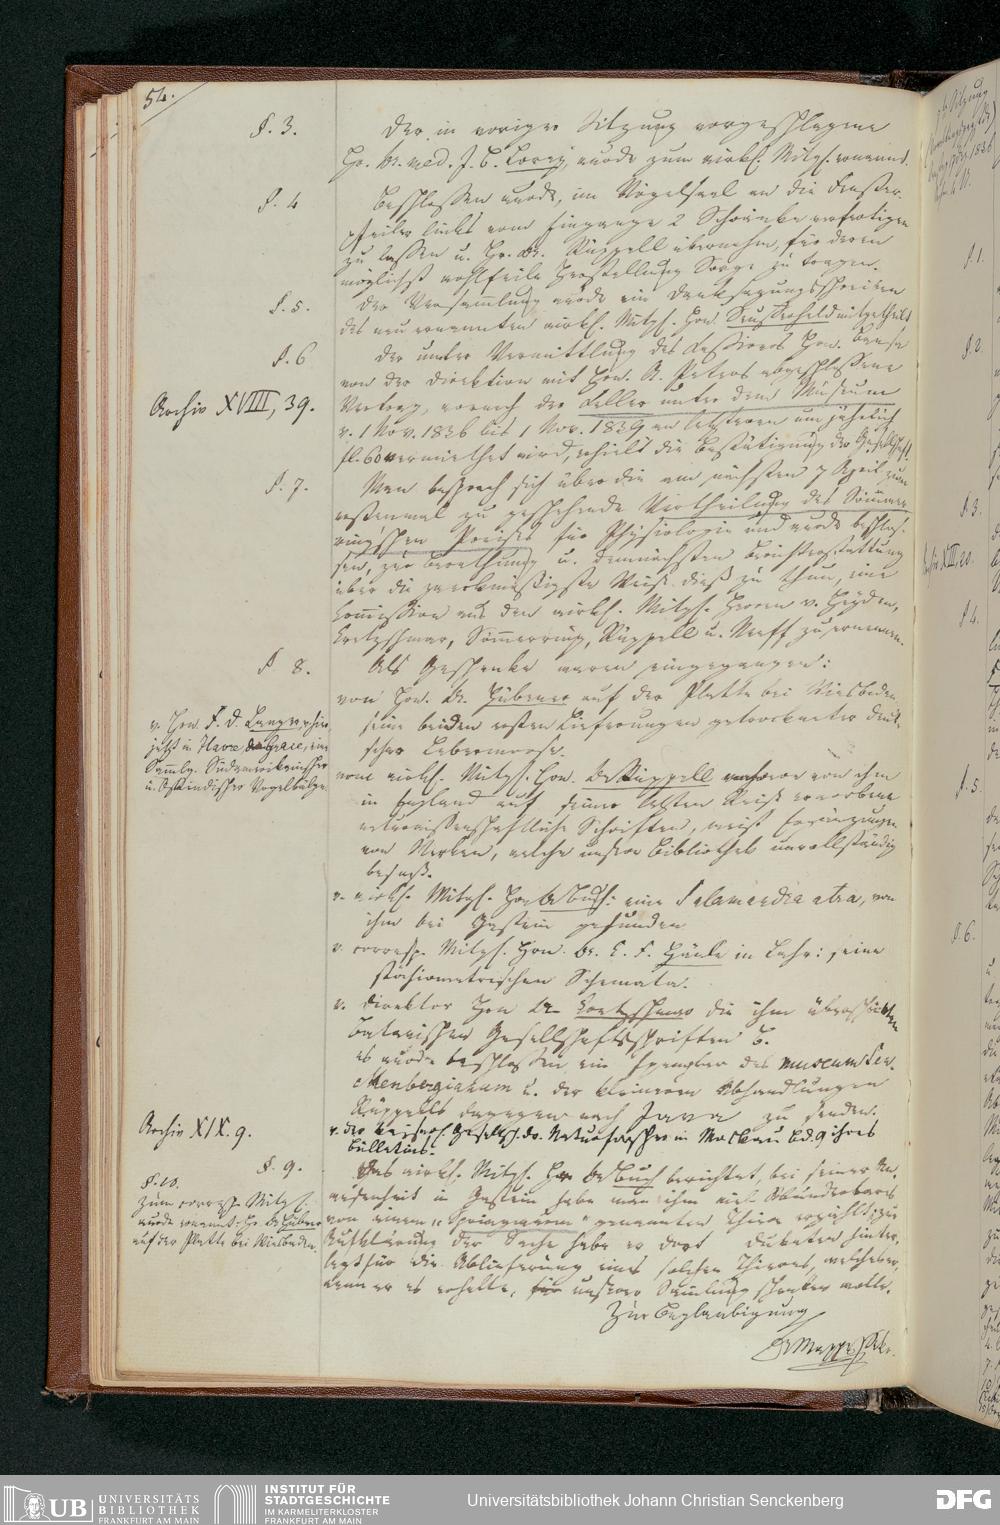 54.
§. 3.
Der in voriger Sitzung vorgeschlagene
Hr. Dr. med. J. C. Lorey, wurde zum wirkl. Mitgl. ernannt.
§. 4
Beschlossen wurde, im Vögelsaal an die Fenster-
pfeiler links vom Eingange 2 Schränke anfertigen
zu lassen u. Hr. Dr. Rüppell übernahm, für deren
möglichst wohlfeile Herstellung Sorge zu tragen.
§. 5.
Der Versammlung wurde ein Danksagungsschreiben
des neu ernannten wirkl. Mitgl. Hrn. mitgetheilt
§. 6
Der unter Vermittlung des Cassiers Hrn.
von der Direktion mit Hrn. A. Peters abgeschlossene
Archiv XVIII, 39.
Vertrag, wonach der Keller unter dem Museum
v. 1 Nov. 1836 bis 1 Nov. 1839 an letzteren um jährlich
fl. 60 vermiethet wird, erhielt die Bestätigung der Gesellschaft.
§. 7.
Man besprach sich über die am nächsten 7 April zum
erstenmal zu geschehende Vertheilung des Sömmer-
ring'schen Preises für Physiologie und wurde beschlos-
sen, zur Berathung u. demnächsten Berichterstattung
über die zweckmäßigste Weise dieß zu thun, eine
Commission aus den wirkl. Mitgl. Herren v. Heyden,
Cretzschmar, Sömmerring, Rüppell u. Neeff zu ernennen.
§ 8.
Als Geschenke waren eingegangen:
von Hrn. Dr. Hübener auf der Platte bei Wiesbaden
seine beiden ersten Lieferungen getrockneter deut-
scher Lebermoose.
v. Hrn. F. D.
jetzt in Havre de Grace, eine
Sammlg. Südamerikanischer
u. Ostindischer Vogelbälge.
vom wirkl. Mitgl. Hrn. Dr Rüppell mehrere von ihm
in England auf seiner letzten Reise erworbene
naturwissenschaftliche Schriften, meist Ergänzungen
von Werken, welche unsere Bibliothek unvollständig
besaß.
v. wirkl. Mitgl. Hrn Dr Buch: eine Salamandra atra, von
ihm bei Gastein gefunden
v. corresp. Mitgl. Hrn. Dr. C. F. Hänle in Lahr: seine
stöchiometrischen Schemata.
v. Direktor Hrn Dr Cretzschmar die ihm überschickten
Batavischen Gesellschaftsschriften
es wurde beschlossen, ein Exemplar des museum Sen-
ckenbergianum u. der kleinern Abhandlungen
Rüppells dagegen nach Java zu senden.
Archiv XIX. 9.
v. der kaiserl. Gesellsch. der Naturforscher in Moskau Bd. 9 ihres
Bülletins.
§. 9.
Das wirkl. Mitgl. Hr Dr Buch berichtet, bei seiner An-
wesenheit in Gastein habe man ihm viel Wunderbares
von einem "Springwurm" genannten Thiere erzählt; zur
Aufklärung der Sache habe er dort Dukaten hinter-
legt für die Ablieferung eines solchen Thieres, welches er,
wenn er es erhalte, für unsere Sammlung schenken wolle.
§. 10.
Zum corresp. Mitgl.
wurde ernannt: Hr. Dr Hübener
auf der Platte bei Wiesbaden.
Zur Beglaubigung
Dr Mappes, Sekr.
§ 1.
§ 2.
§ 3.
§ 4.
§. 5.
§ 6.
UB UNIVERSITÄTS
BIBLIOTHEK
FRANKFURT AM MAIN
INSTITUT FÜR
STADTGESCHICHTE
IM KARMELITERKLOSTER
FRANKFURT AM MAIN
Universitätsbibliothek Johann Christian Senckenberg
DFG